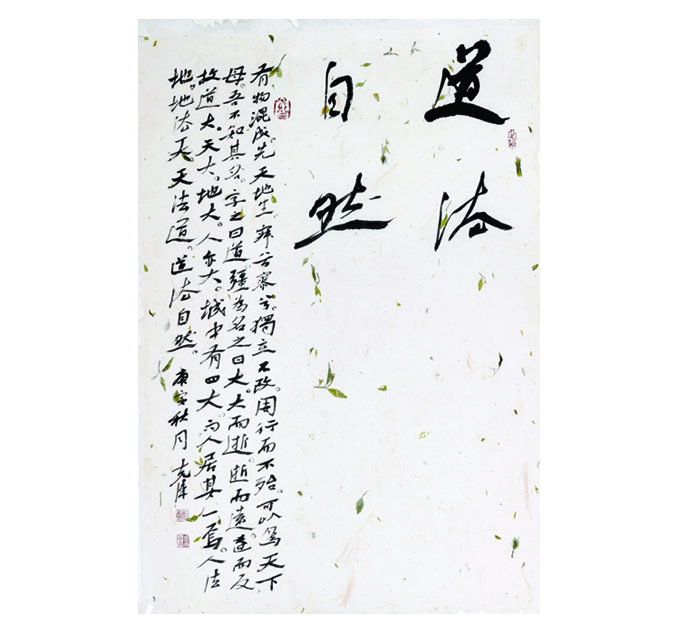 道法
自然
有物混成。先天地生。寂兮寥兮。獨立不改。周行而不殆。可以為天下
母。吾不知其名。字之曰道。彊为名之曰大。大而逝。逝而遠。遠而反
故道大。天大。地大。人亦大。域中有四大。而人居其一焉。人法
地。地法天。天法道。道法自然。庚子秋月